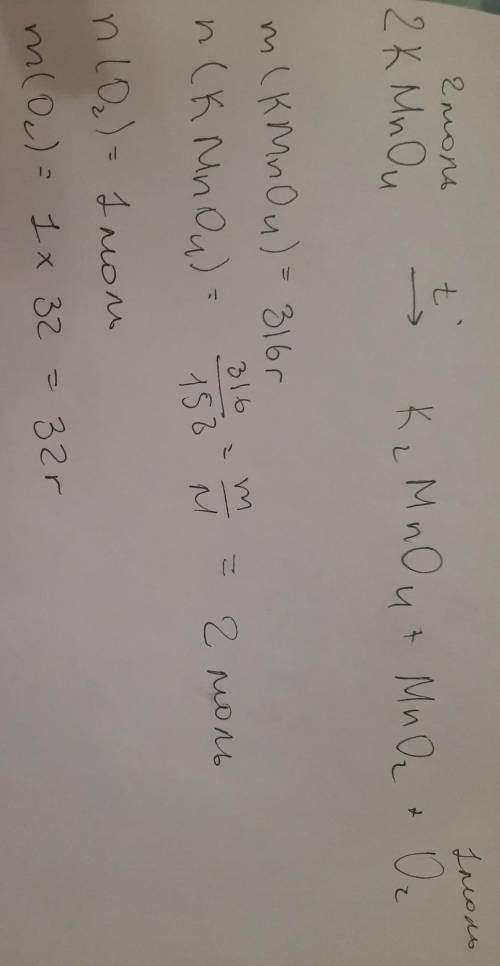 2моль t° 1моль
2KMnO4 → K2MnO4 + MnO2 + O2
m(KMnO4) = 316г
n(KMnO4) = 316/158 = m/M = 2 моль
n(O2) = 1 моль
m(O2) = 1 × 32 = 32г